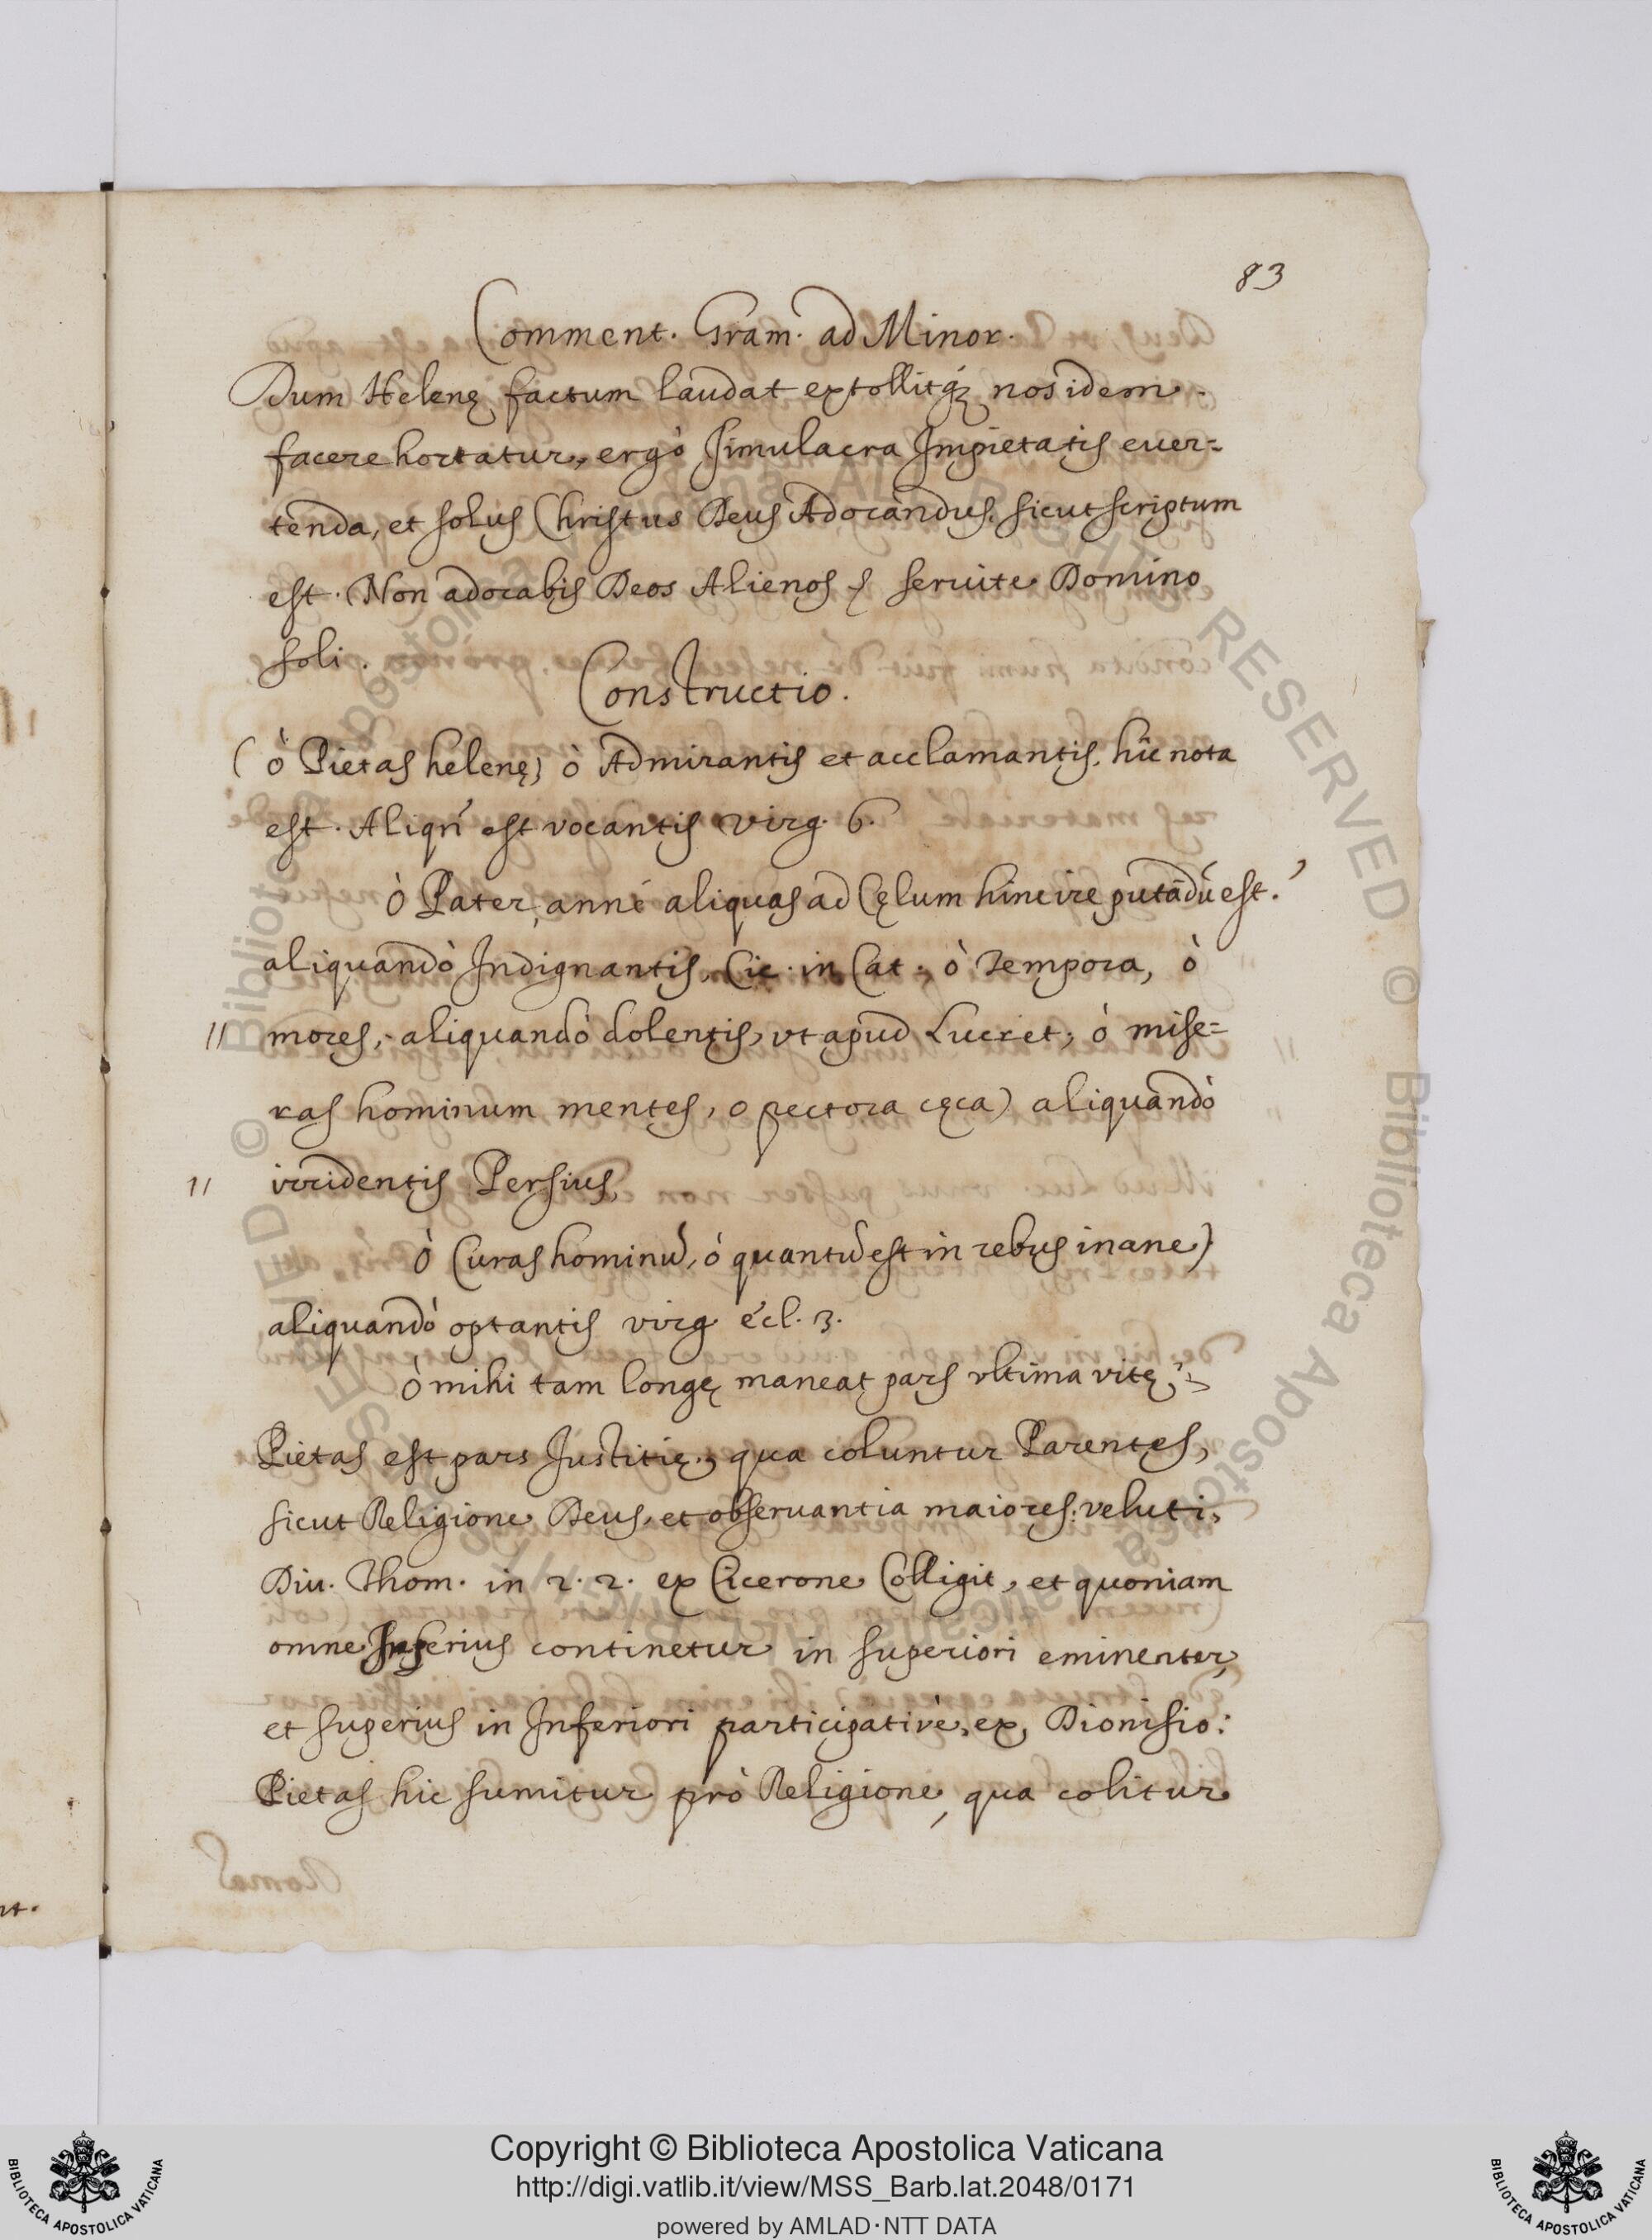 83
Comment. Gram. ad Minor.
Dum Helenę factum laudat extollitq́ꝫ nos idem
facere hortatur, ergò simulacra Impietatis euer=
tenda, et solus Christus Deus Adorandus, sicut scriptum
est. Non adorabis Deos Alienos seruite Domino
soli.
Constructio.
(ò Pietas helenę) ò Admirantis et acclamantis, hic nota
est. Aliqń est vocantis Virg. 6.
Ò Pater, anné aliquas ad Cęlum hinc ire putãdũ est.
aliquandò Indignantis, Cic. in Cat., ò Tempora, ò
mores, aliquandò dolentis, vt apud Lucret, ò mise=
ras hominum mentes, o pectora cęca) aliquandò
irridentis Persius,
Ò Curas hominũ, ò quantũ est in rebus inane)
aliquandò optantis virg ecl. 3.
Ò mihi tam longę maneat pars vltima vitę,
Pietas est pars Justitię, qua coluntur Parentes,
sicut Religione Deus, et obseruantia maiores: veluti,
Diu. Thom. in 2. 2. ex Cicerone Colligit, et quoniam
omne Inferius continetur in superiori eminenter,
et superius in Inferiori participativè, ex, Dionisio:
Pietas hic sumitur prò Religione, qua colitur
Copyright © Biblioteca Apostolica Vaticana
http://digi.vatlib.it/view/MSS_Barb.lat.2048/0171
powered by AMLAD·NTT DATA
BIBLIOTECA APOSTOLICA VATICANA
BIBLIOTECA APOSTOLICA VATICANA